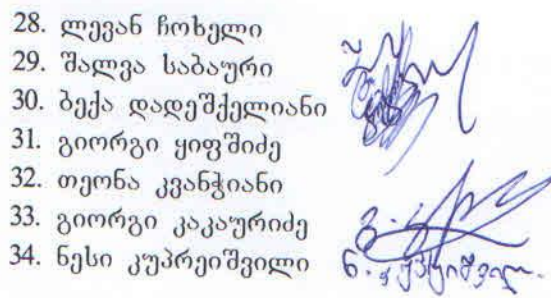 28. ლევან ჩოხელი
29. შალვა საბაური
30. ბექა დადეშქელიანი
31. გიორგი ყიფშიძე
32. თეონა კვანჭიანი
33. გიორგი კაკაურიძე
34. ნესი კუპრეიშვილი